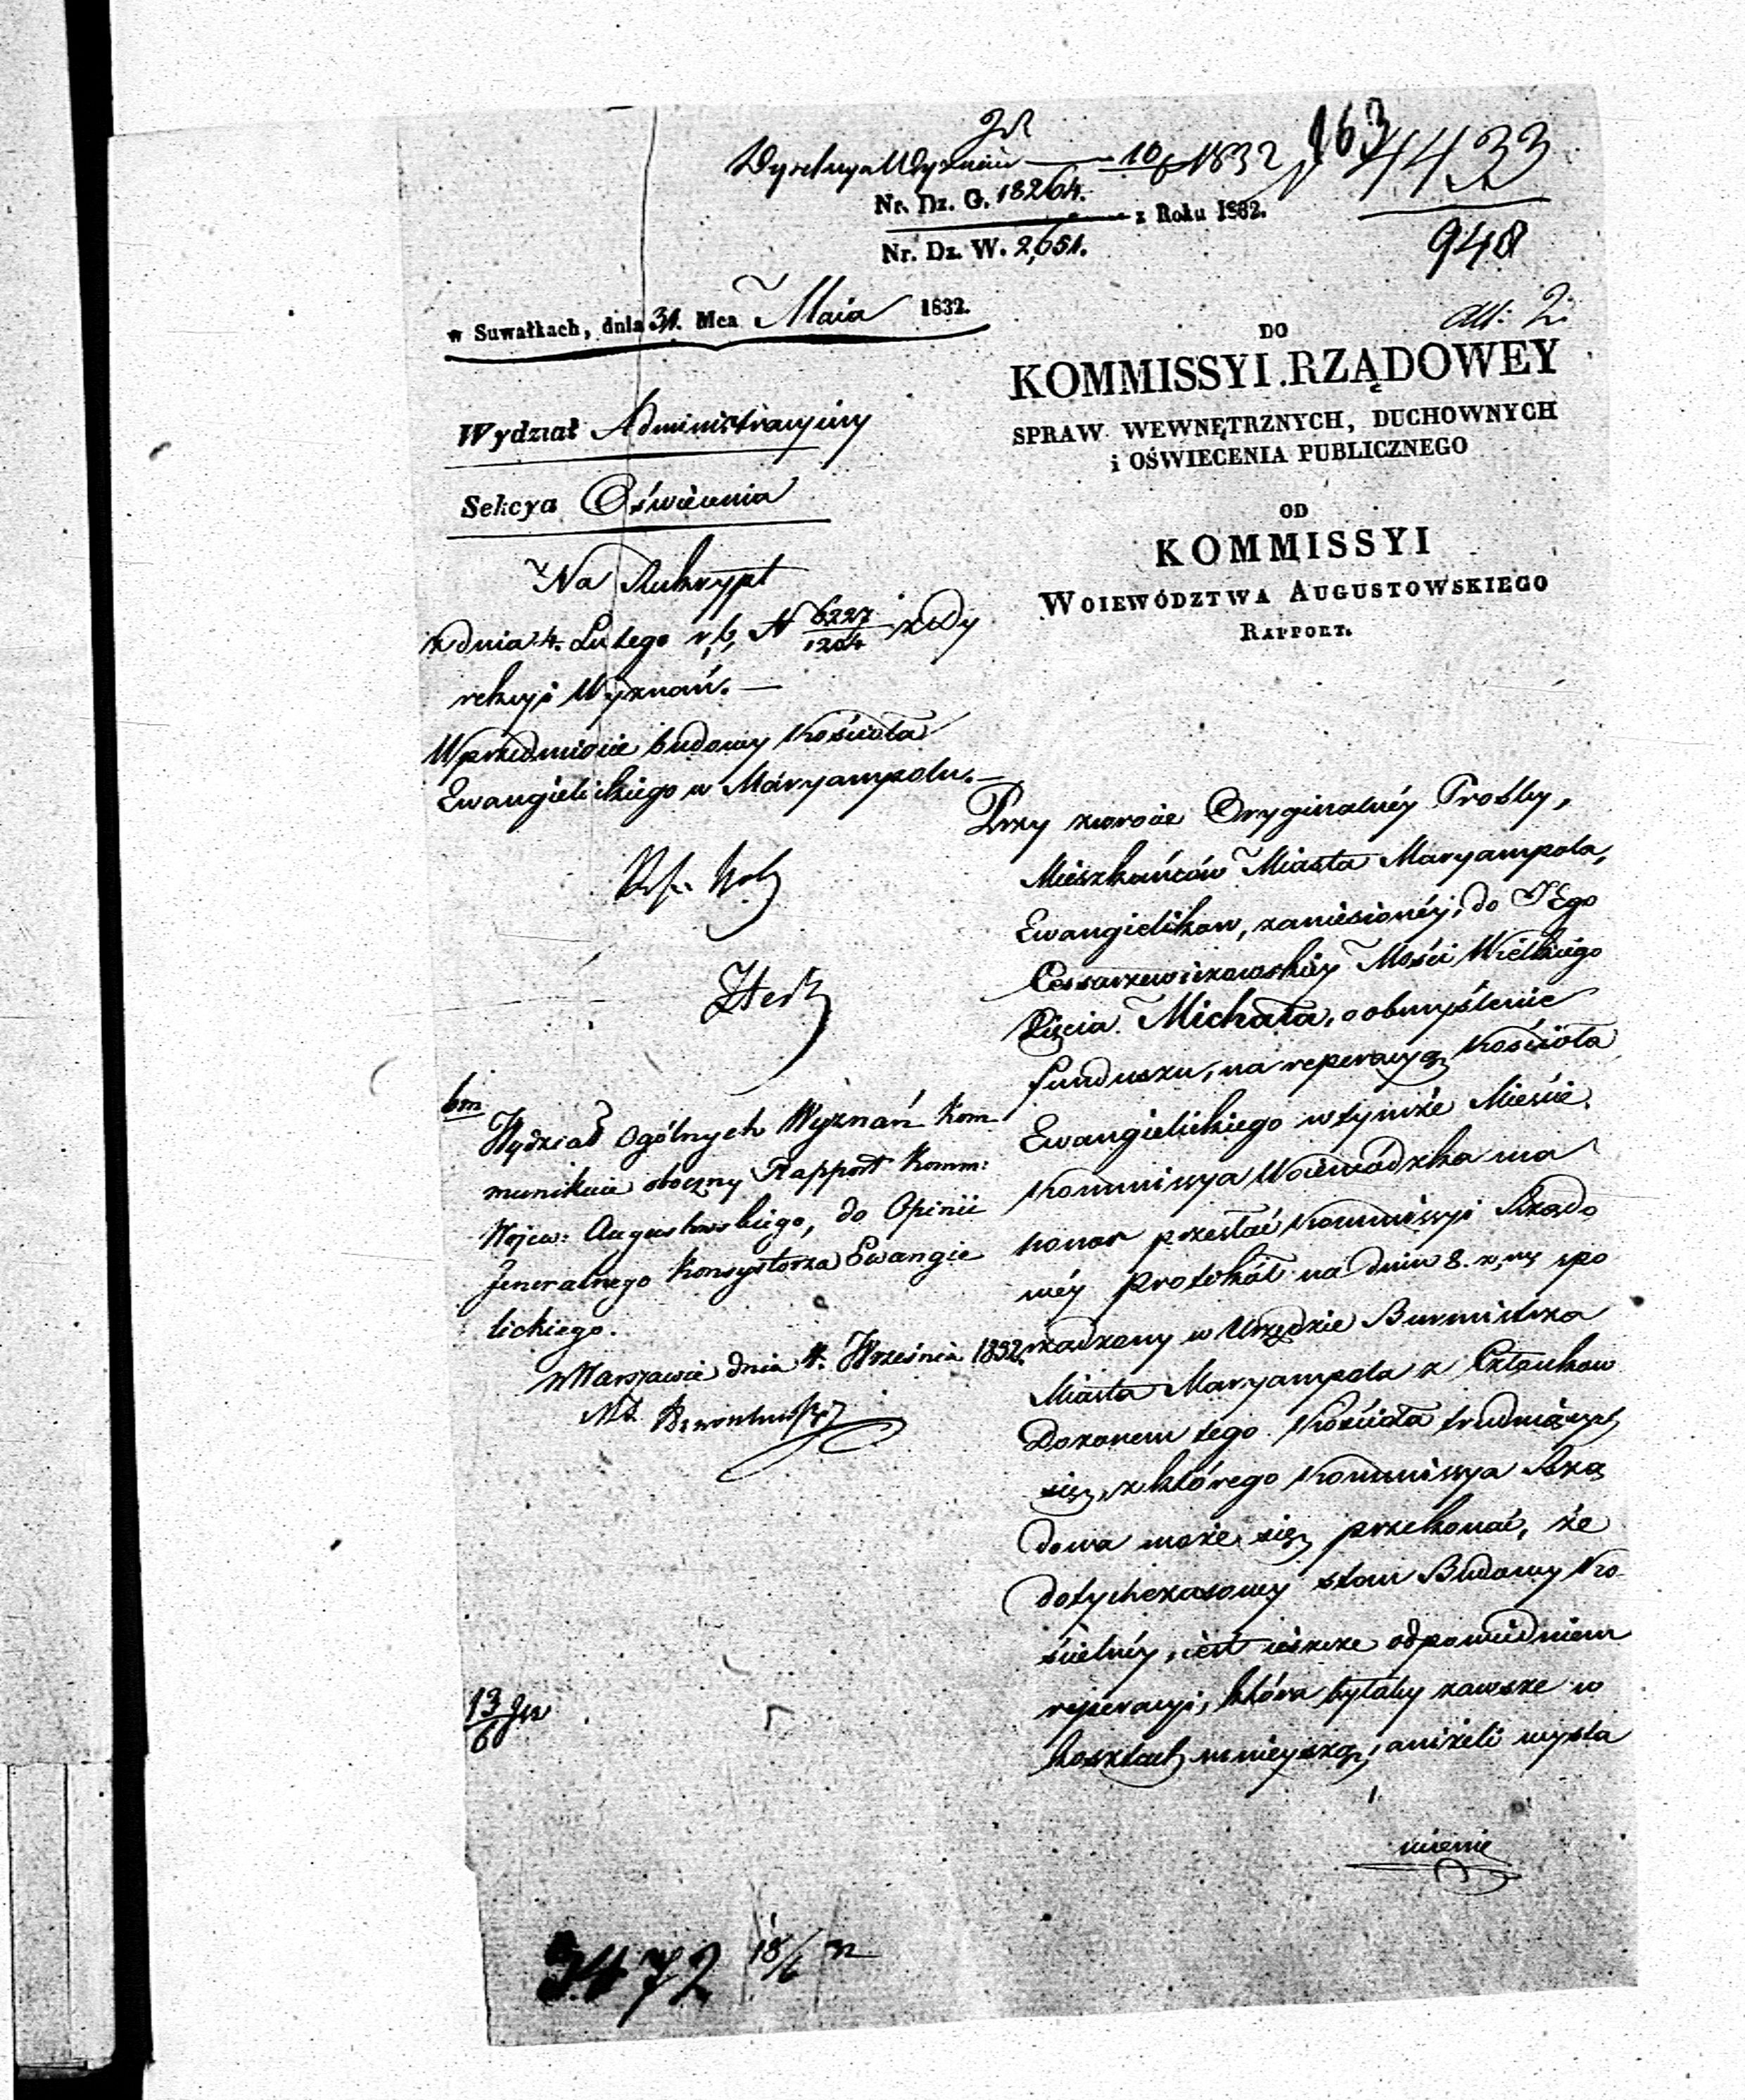 163
Dyrekcya Wyznań 10/6 1832 4433
Nr. Dz. G. 18264.
z Roku 1832.
Nr. Dz. W. 2,651.
948
w Suwałkach, dnia 31. Mca Maia 1832.
all: 2.
DO
KOMMISSYI RZĄDOWEY
SPRAW WEWNĘTRZNYCH, DUCHOWNYCH
i OŚWIECENIA PUBLICZNEGO
OD
KOMMISSYI
WOIEWÓDZTWA AUGUSTOWSKIEGO
RAPPORT.
Wydział Administracyiny
Sekcya Oświecenia
Na Reskrypt
z dnia 4. Lutego r, b, N 6227/1204 z Dy
rekcyi Wyznań.—
W przedmiocie budowy Kościoła
Ewangielickiego w Maryampolu.—
bm
Wydział Ogólnych Wyznań Kom
munikuie oboczny Rapport Komm:
Wojew: Augustowskiego, do Opinii
Jeneralnego Konsystorza Ewangie
lickiego.
w Warszawie dnia 4. Września 1832.
13/6
Przy zwrocie Oryginalnéy Prośby,
Mieszkańców Miasta Maryampola,
Ewangielikow, zaniesionéy, do JEgo
Cessarzewiczowskiéy Mości Wielkiego
Xięcia Michała, o obmyślenie
funduszu, na reperacyą Kościoła
Ewangielickiego w tymże Mieście.
Kommissya Woiewódzka ma
honor przesłać Kommissyi Rządo
wéy protokół na dniu 8. z, m, spo
rządzony w Urzędzie Burmistrza
Miasta Maryampola z Członkow
Dozorem tego Kościoła trudniących
się, z którego Kommissya Rzą
dowa może się przekonać, że
dotychczasowy stan Budowy Ko
ścielnéy, iest ieszcze odpowiednim
reperacyi, która byłaby zawsze w
kosztach mnieyszą, aniżeli wysta
wienie
3472 18/6 32